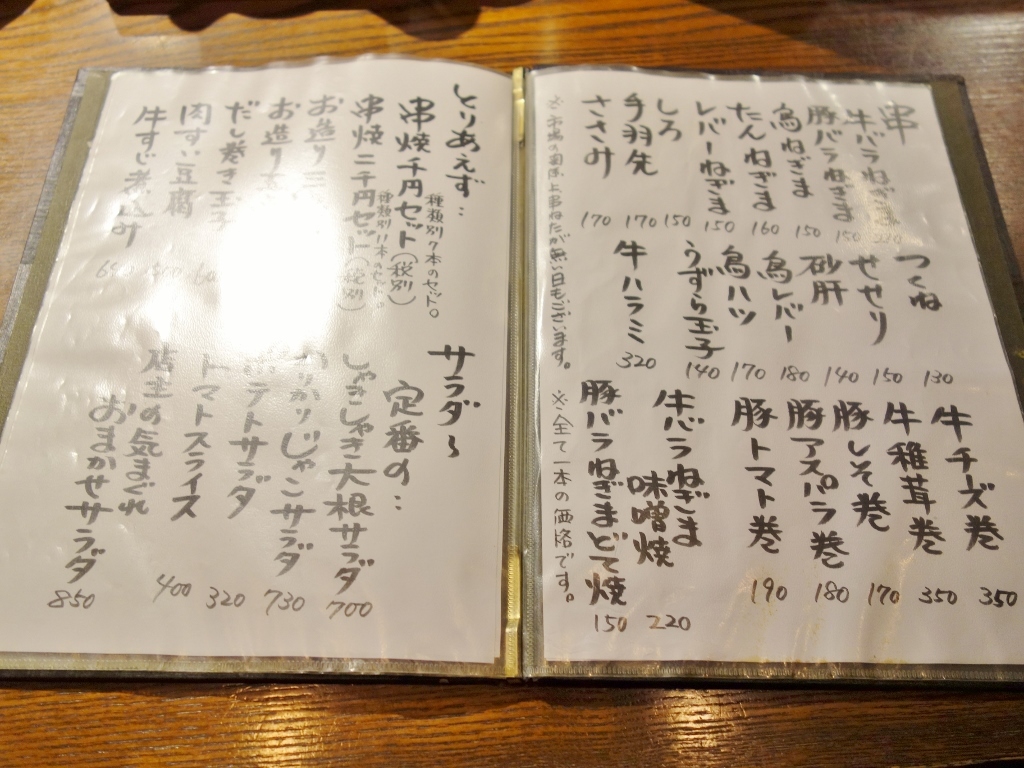 串
牛バラねぎま
豚バラねぎま 150
鳥ねぎま 150
たんねぎま 160
レバーねぎま 150
しろ 150
手羽先 170
ささみ 170
つくね 130
せせり 150
砂肝 140
鳥レバー 180
鳥ハツ 170
うずら玉子 140
牛ハラミ 320
牛チーズ巻 350
牛稚茸巻 350
豚しそ巻 170
豚アスパラ巻 180
豚トマト巻 190
牛バラねぎま
味噌焼 220
豚バラねぎまどて焼 150
※市場の関係上串ねたが無い日もございます。 ※全て一本の価格です。
とりあえず…
串焼千円セット(税別)
種類別7本のセット。
串焼二千円セット(税別)
種類別11本のセット。
お造り三
お造り
だし巻き玉子
肉すい豆腐
牛すじ煮込み
サラダ〜
定番の…
しゃきしゃき大根サラダ 700
かりじゃこサラダ 730
ポテトサラダ 320
トマトスライス 400
店主の気まぐれ
おまかせサラダ 850